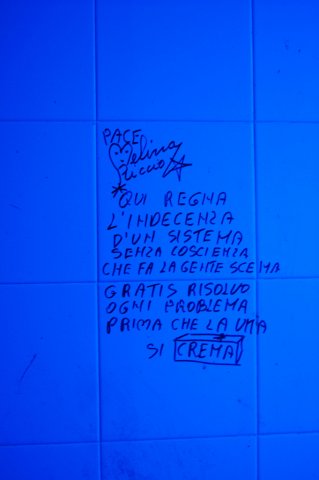 PACE
Melina
Riccio
*QUI REGNA
L'INDECENZA
D'UN SISTEMA
SENZA COSCIENZA
CHE FA LA GENTE SCEMA
GRATIS RISOLVO
OGNI PROBLEMA
PRIMA CHE LA VITA
SI CREMA